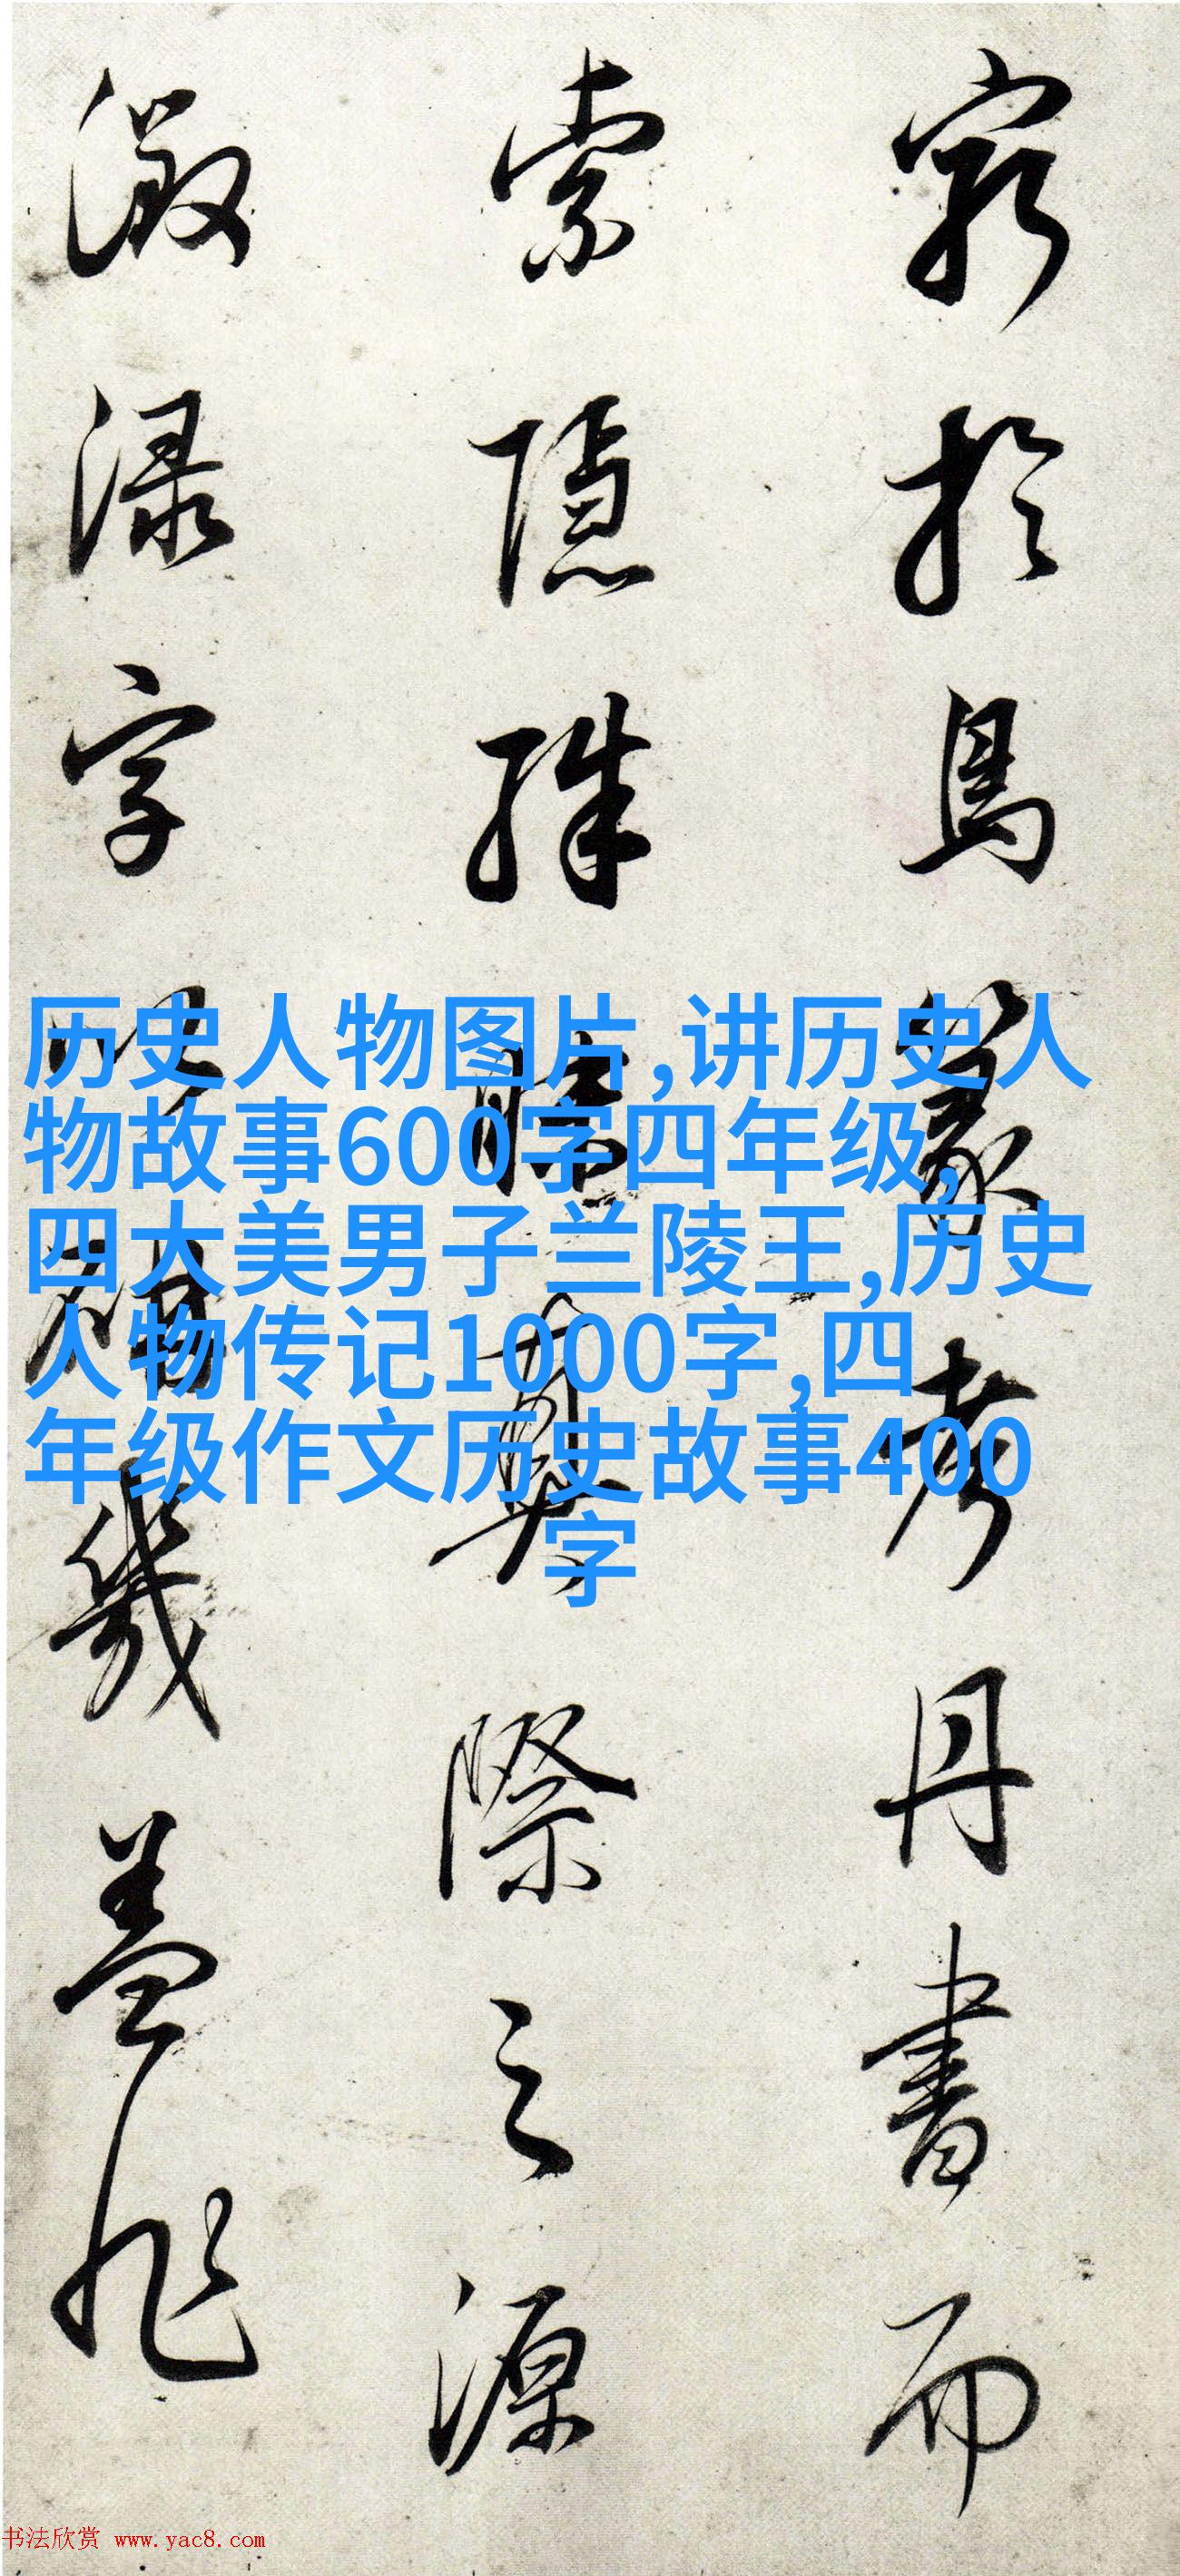 窮於鳥篆考丹書而
索隱殊昧真際之源
渌字以研幾盖非
历史人物图片,讲历史人
物故事600字四年级,
四大美男子兰陵王,历史
人物传记1000字,四
年级作文历史故事400
字
书法欣赏 www.yac8.com